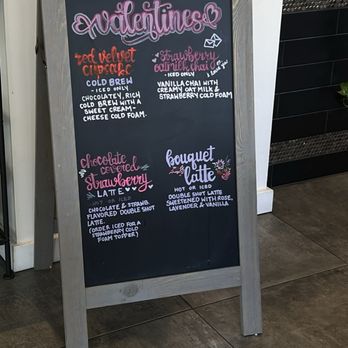 Valentines
red velvet
cupcake
COLD BREW
- ICED ONLY
CHOCOLATEY, RICH
COLD BREW WITH A
SWEET CREAM-
CHEESE COLD FOAM.
strawberry
oatmilk chai
- ICED ONLY
I love you
VANILLA CHAI WITH
CREAMY OAT MILK &
STRAWBERRY COLD FOAM.
chocolate
covered
strawberry
LATTE
HOT OR ICED
CHOCOLATE & STRAWB.
FLAVORED DOUBLE SHOT
LATTE.
(ORDER ICED FOR A
STRAWBERRY COLD
FOAM TOPPER)
bouquet
latte
HOT OR ICED
DOUBLE SHOT LATTE
SWEETENED WITH ROSE,
LAVENDER & VANILLA